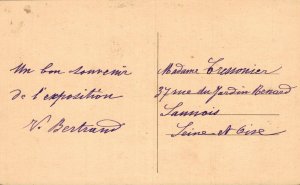 Un bon souvenir
de l'exposition
V. Bertrand
Madame Tressonier
37 rue du Jardin Renard
Sannois
Seine et Oise